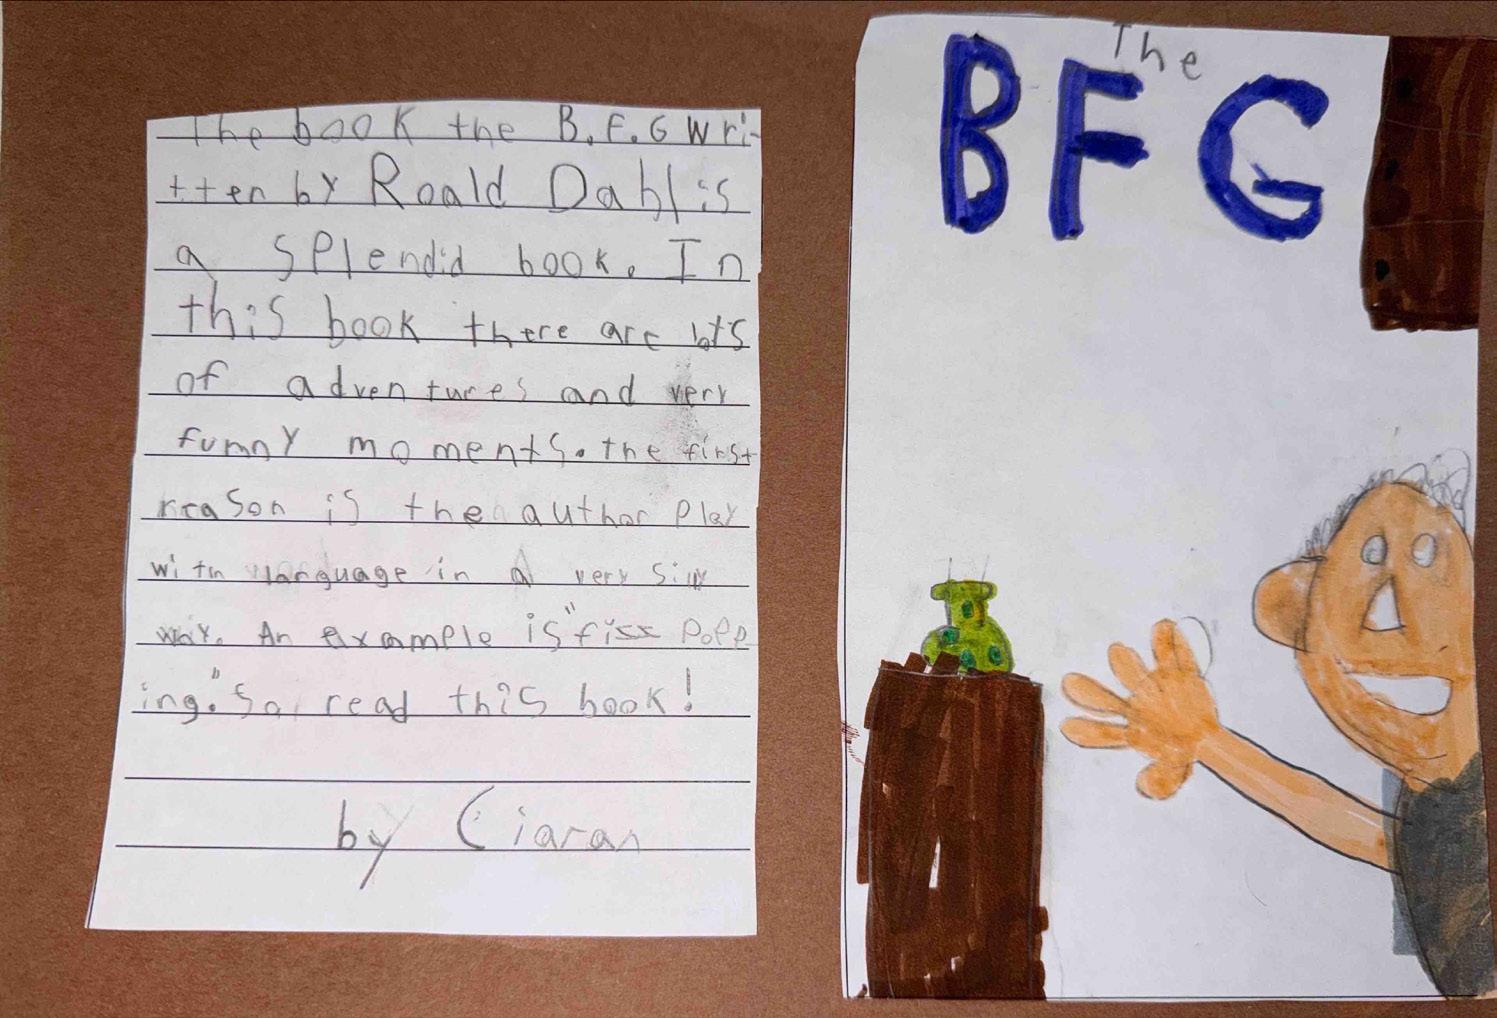 The book the B.F.G wri-
tten by Roald Dahl is
a splendid book. In
this book there are lots
of adventures and very
funny moments. the first
reason is the author play
with language in a very silly
way. An example is "fizz popp
ing." So, read this book!
by Ciaran
The
BFG